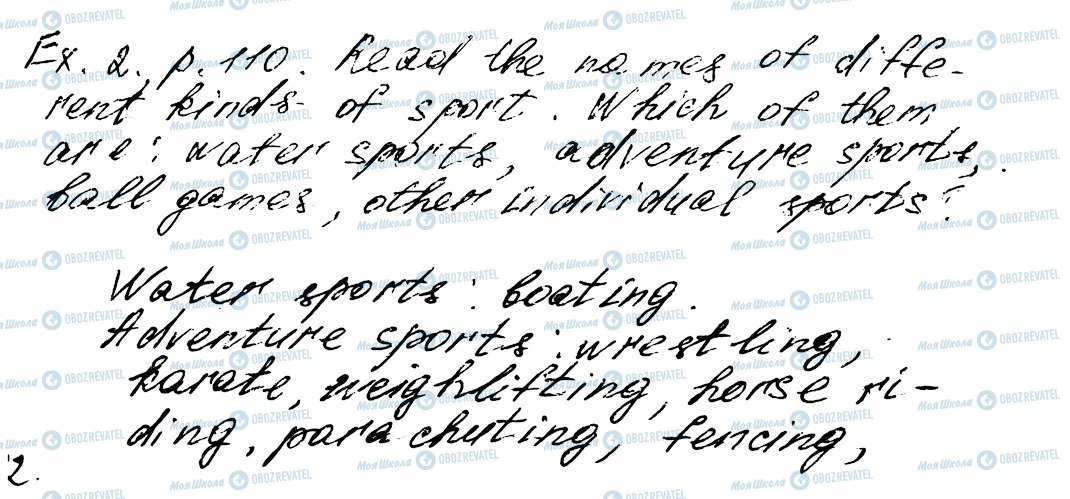 Ex. 2., p. 110. Read the names of diffe-
rent kinds of sport. Which of them
are: water sports, adventure sports,
ball games, other individual sports?
Water sports: boating.
Adventure sports: wrestling,
karate, weighlifting, horse ri-
ding, parachuting, fencing,
2.